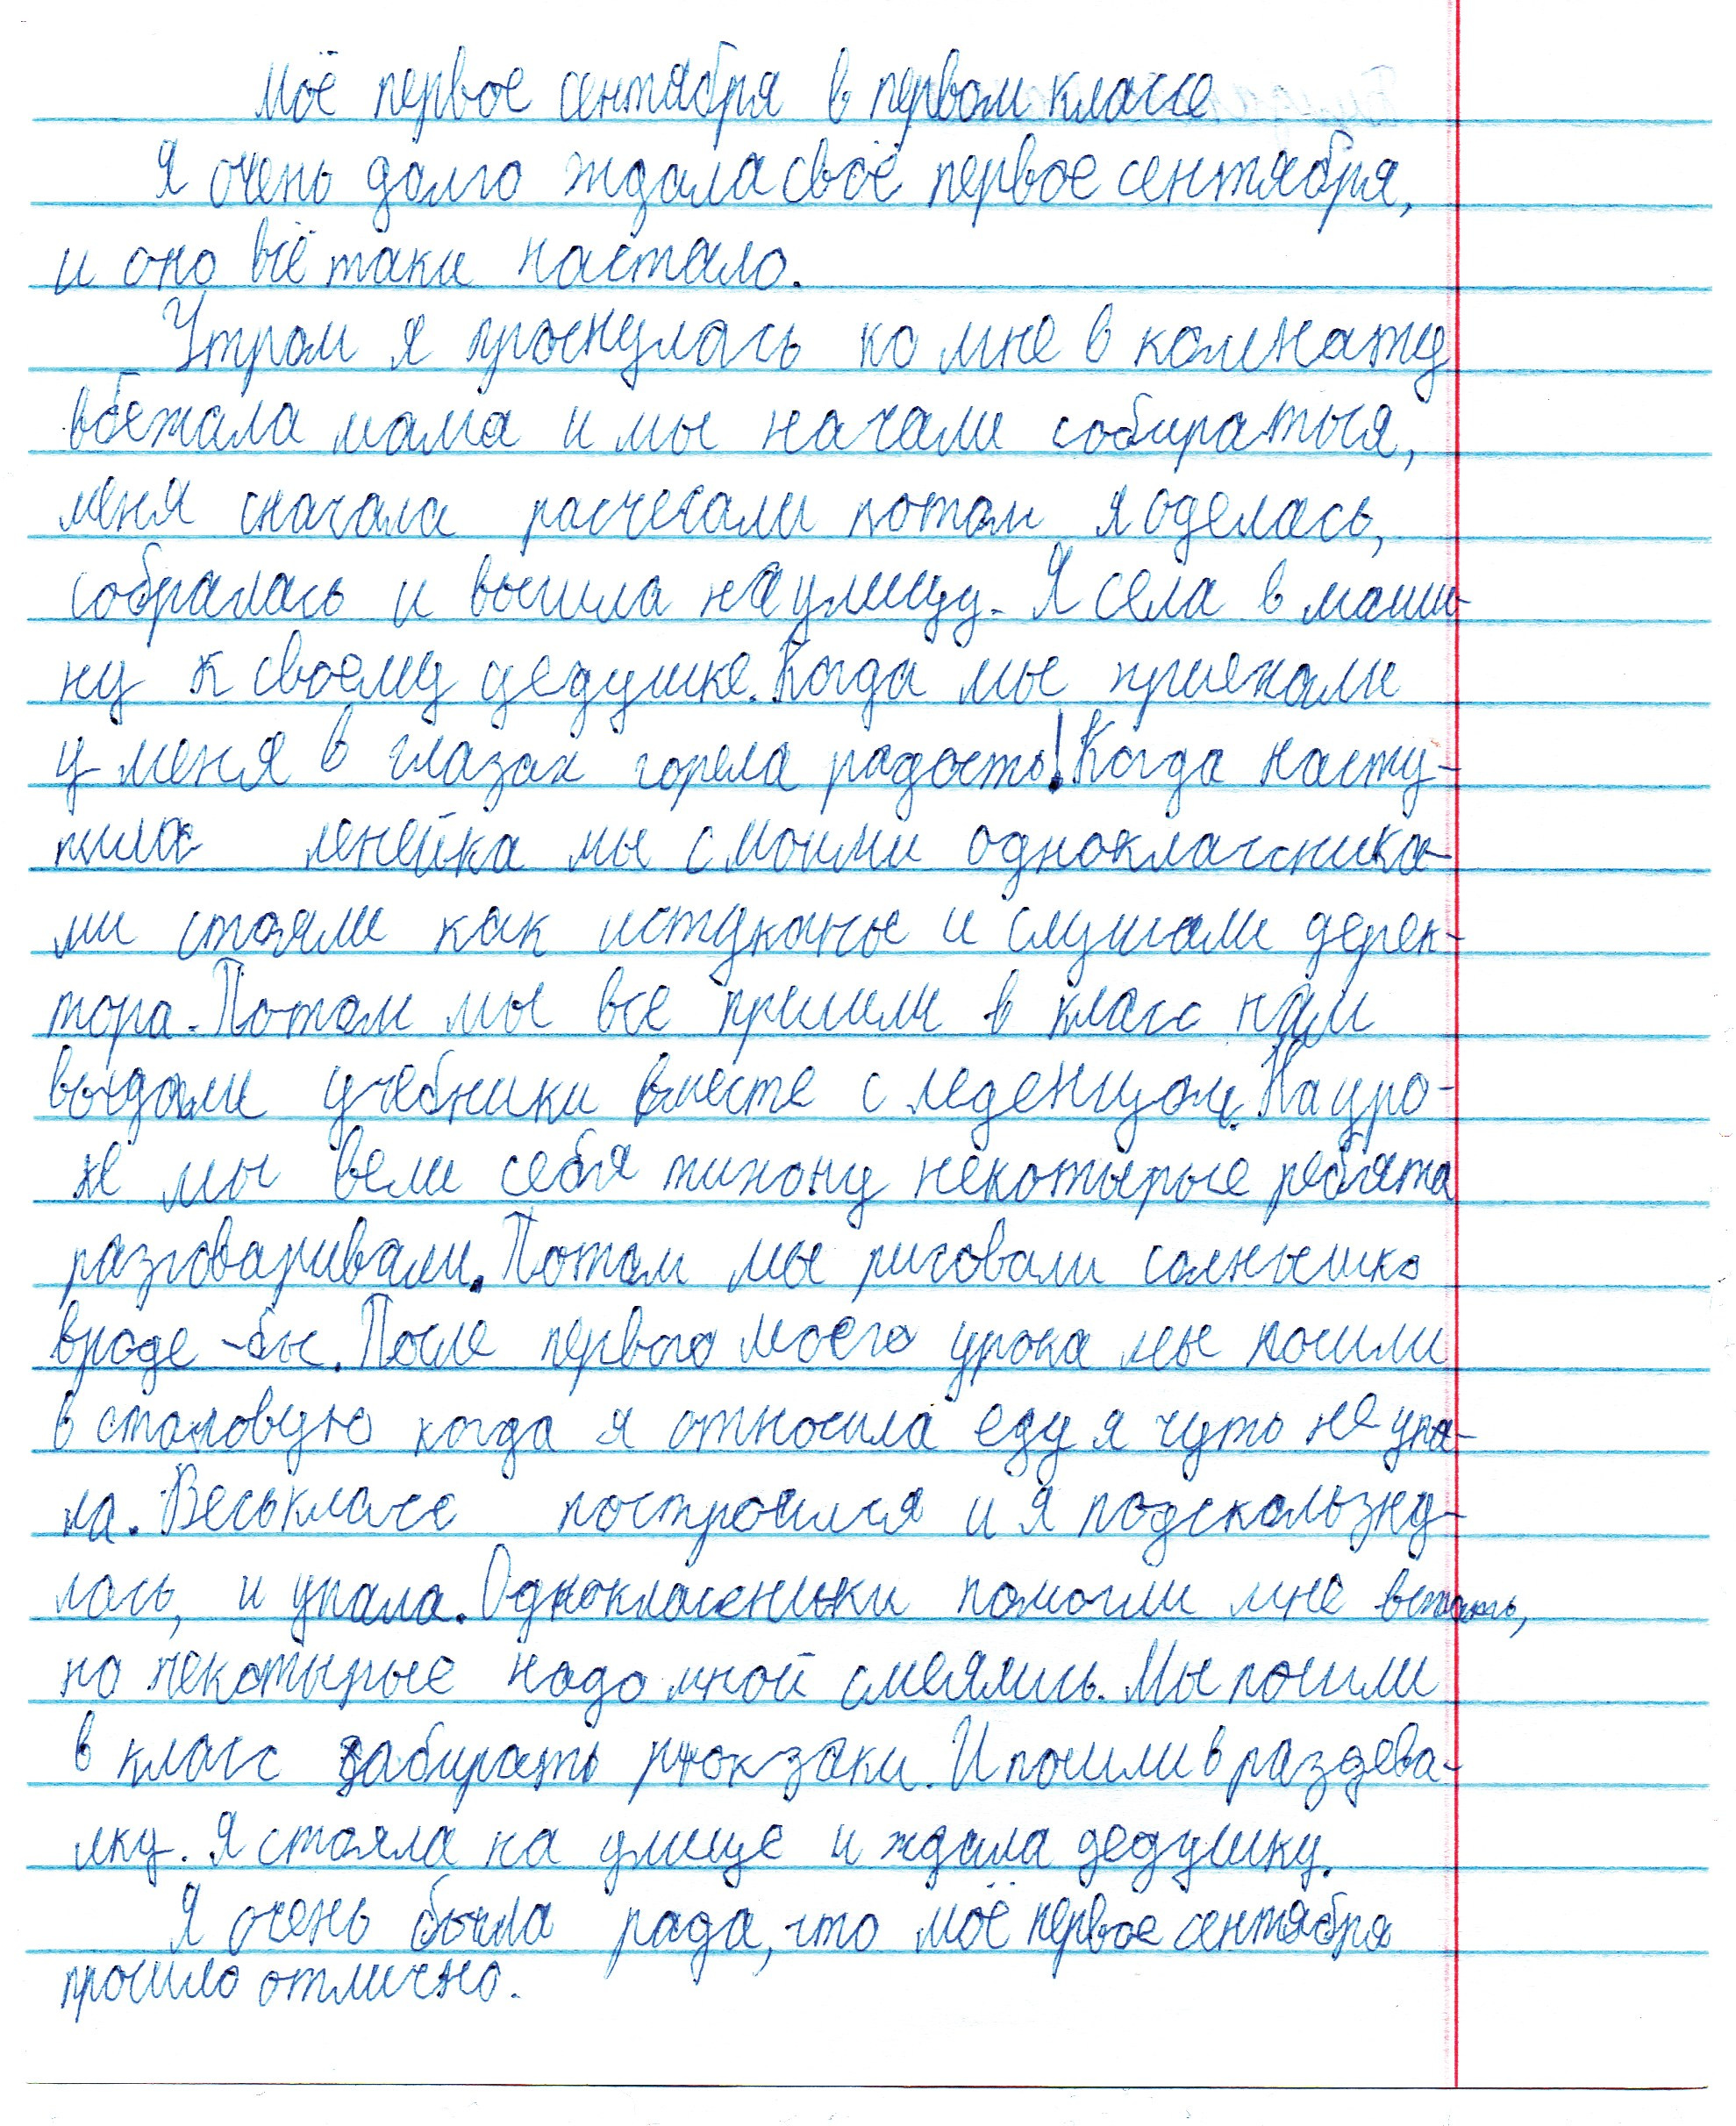 Моё первое сентября в первом классе
Я очень долго ждала своё первое сентября,
и оно всё таки настало.
Утром я проснулась ко мне в комнату
вбежала мама и мы начали собираться,
меня сначала расчесали потом я оделась,
собралась и вышла на улицу. Я села в маши-
ну к своему дедушке. Когда мы приехали
у меня в глазах горела радость! Когда насту-
пила ленейка мы с моими одноклассника-
ми стояли как истуканы и слушали дерек-
тора. Потом мы все пришли в класс нам
выдали учебники вместе с леденцом. На уро-
ке мы вели себя тихо ну некотырые ребята
разговаривали. Потом мы рисовали солнышко
вроде-бы. После первого моего урока мы пошли
в столовую когда я относила еду я чуть не упа-
ла. Весь класс построился и я подскользну-
лась, и упала. Однокласеники помогли мне встать,
но некотырые надо мной смеялись. Мы пошли
в класс забирать рюкзаки. И пошли в раздева-
лку. Я стояла на улице и ждала дедушку.
Я очень была рада, что моё первое сентября
прошло отлично.